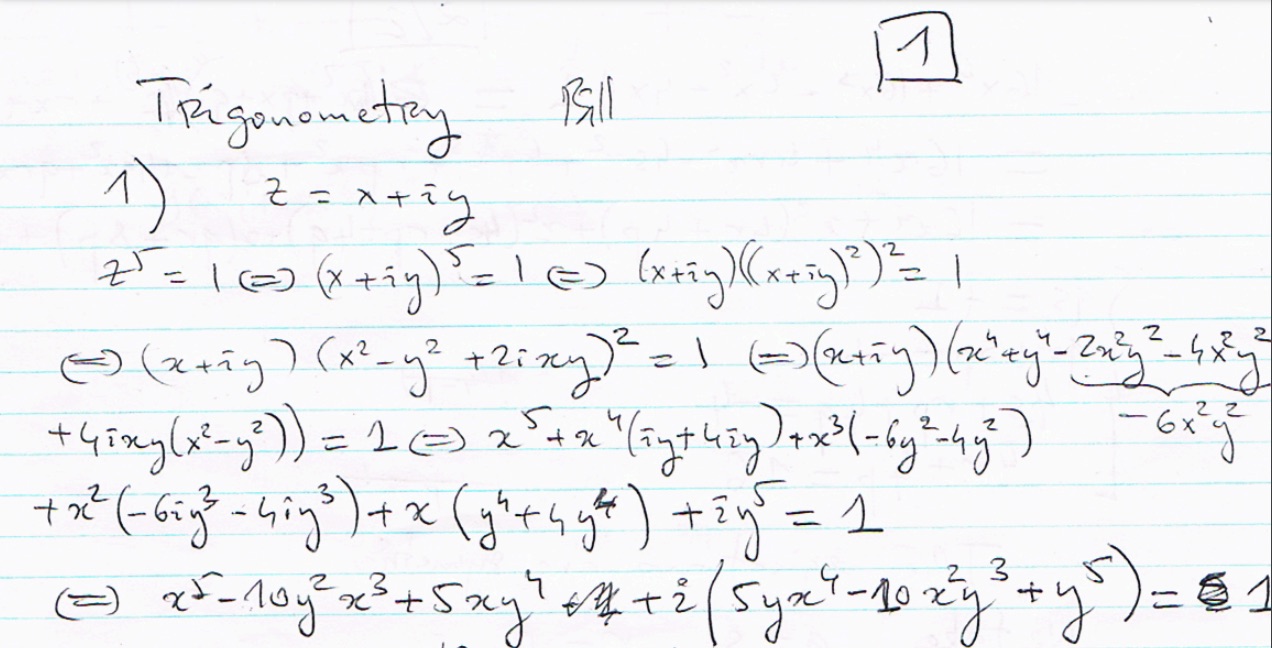 1
Trigonometry
1) z = x + iy
z⁵ = 1 ⇔ (x + iy)⁵ = 1 ⇔ (x+iy)((x+iy)²)² = 1
⇔ (x+iy) (x² - y² + 2ixy)² = 1 ⇔ (x+iy)(x⁴+y⁴-2x²y²-4x²y²
-6x²y²
+4ixy(x²-y²)) = 1 ⇔ x⁵ + x⁴(iy+4iy) + x³(-6y²-4y²)
+x²(-6iy³ - 4iy³) + x (y⁴+4y⁴) + iy⁵ = 1
⇔ x⁵ - 10y²x³ + 5xy⁴ + i(5yx⁴ - 10x²y³ + y⁵) = 1